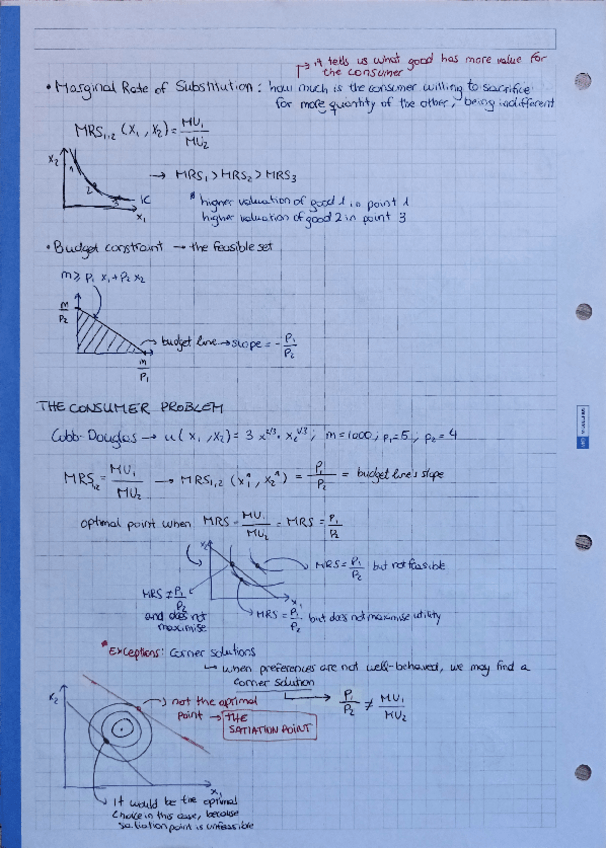 it tells us what good has more value for
the consumer
• Marginal Rate of Substitution: how much is the consumer willing to sacrifice
for more quantity of the other, being indifferent
MRS₁,₂ (x₁, x₂) = MU₁/MU₂
x₂
1
2
3
IC
x₁
→ MRS₁ > MRS₂ > MRS₃
* higher valuation of good 1 in point 1
higher valuation of good 2 in point 3
• Budget constraint → the feasible set
m ≥ p₁ x₁ + p₂ x₂
m/p₂
→ budget line → slope = - p₁/p₂
m/p₁
THE CONSUMER PROBLEM
Cobb-Douglas → u(x₁, x₂) = 3 x^2/3 · x₂^1/3; m=1000, p₁=5, p₂=4
MRS₁,₂ = MU₁/MU₂ → MRS₁,₂ (x₁*, x₂*) = p₁/p₂ = budget line's slope
optimal point when MRS = MU₁/MU₂ = MRS = p₁/p₂
x₂
MRS = p₁/p₂ but not feasible
MRS ≠ p₁/p₂
and does not
maximise
x₁
MRS = p₁/p₂ but does not maximise utility
*Exceptions: Corner solutions
↳ when preferences are not well-behaved, we may find a
corner solution
→ p₁/p₂ ≠ MU₁/MU₂
x₂
→ not the optimal
point → THE
SATIATION POINT
x₁
It would be the optimal
choice in this case, because
satiation point is unfeasible